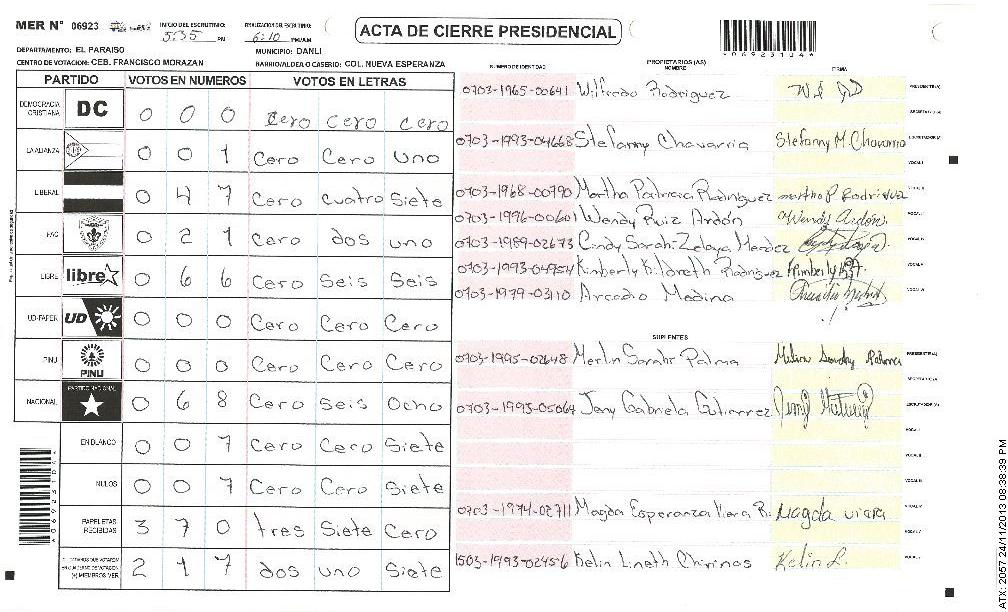 MER N° 06923
INICIO DEL ESCRUTINIO: 5:35 PM
FINALIZACION DEL ESCRUTINIO: 6:10 PM/AM
ACTA DE CIERRE PRESIDENCIAL
DEPARTAMENTO: EL PARAISO
MUNICIPIO: DANLI
CENTRO DE VOTACION: CEB. FRANCISCO MORAZAN
BARRIO/ALDEA O CASERIO: COL. NUEVA ESPERANZA
PARTIDO VOTOS EN NUMEROS VOTOS EN LETRAS
DEMOCRACIA CRISTIANA DC 0 0 0 Cero Cero Cero
LA ALIANZA 0 0 1 Cero Cero uno
LIBERAL 0 4 7 Cero cuatro Siete
PAC 0 2 1 Cero dos uno
LIBRE libre 0 6 6 Cero Seis Seis
UD-FAPER UD 0 0 0 Cero Cero Cero
PINU PINU 0 0 0 Cero Cero Cero
NACIONAL PARTIDO NACIONAL 0 6 8 Cero Seis Ocho
EN BLANCO 0 0 7 Cero Cero Siete
NULOS 0 0 7 Cero Cero Siete
PAPELETAS RECIBIDAS 3 7 0 tres Siete Cero
2 1 7 dos uno Siete
NUMERO DE IDENTIDAD PROPIETARIOS (AS) NOMBRE FIRMA
0703-1965-00641 Wilfredo Rodriguez PRESIDENTE(A)
SECRETARIO(A)
0703-1993-04668 Stefanny Chavarria Stefanny M Chavarria ESCRUTADOR(A)
VOCAL I
0703-1968-00790 Martha Patricia Rodriguez martha P Rodriguez
0703-1996-00601 Wendy Ruiz Ardón Wendy Ardón
0703-1989-02673 Cindy Sarahi Zelaya Mendez
0703-1993-04954 Kimberly Rodriguez Kimberly
0703-1979-03110 Arcadio Medina
SUPLENTES
0703-1995-02648 Merlin Sarahi Palma PRESIDENTE(A)
SECRETARIO(A)
0703-1995-05064 Jeny Gabriela Gutierrez ESCRUTADOR(A)
VOCAL I
VOCAL II
VOCAL III
0703-1974-02711 Magda Esperanza Viera R. Magda viera
1503-1993-02456 Kelin Lineth Chirinos Kelin L.
A06923104
ATX: 2057 24/11/2013 08:38:39 PM